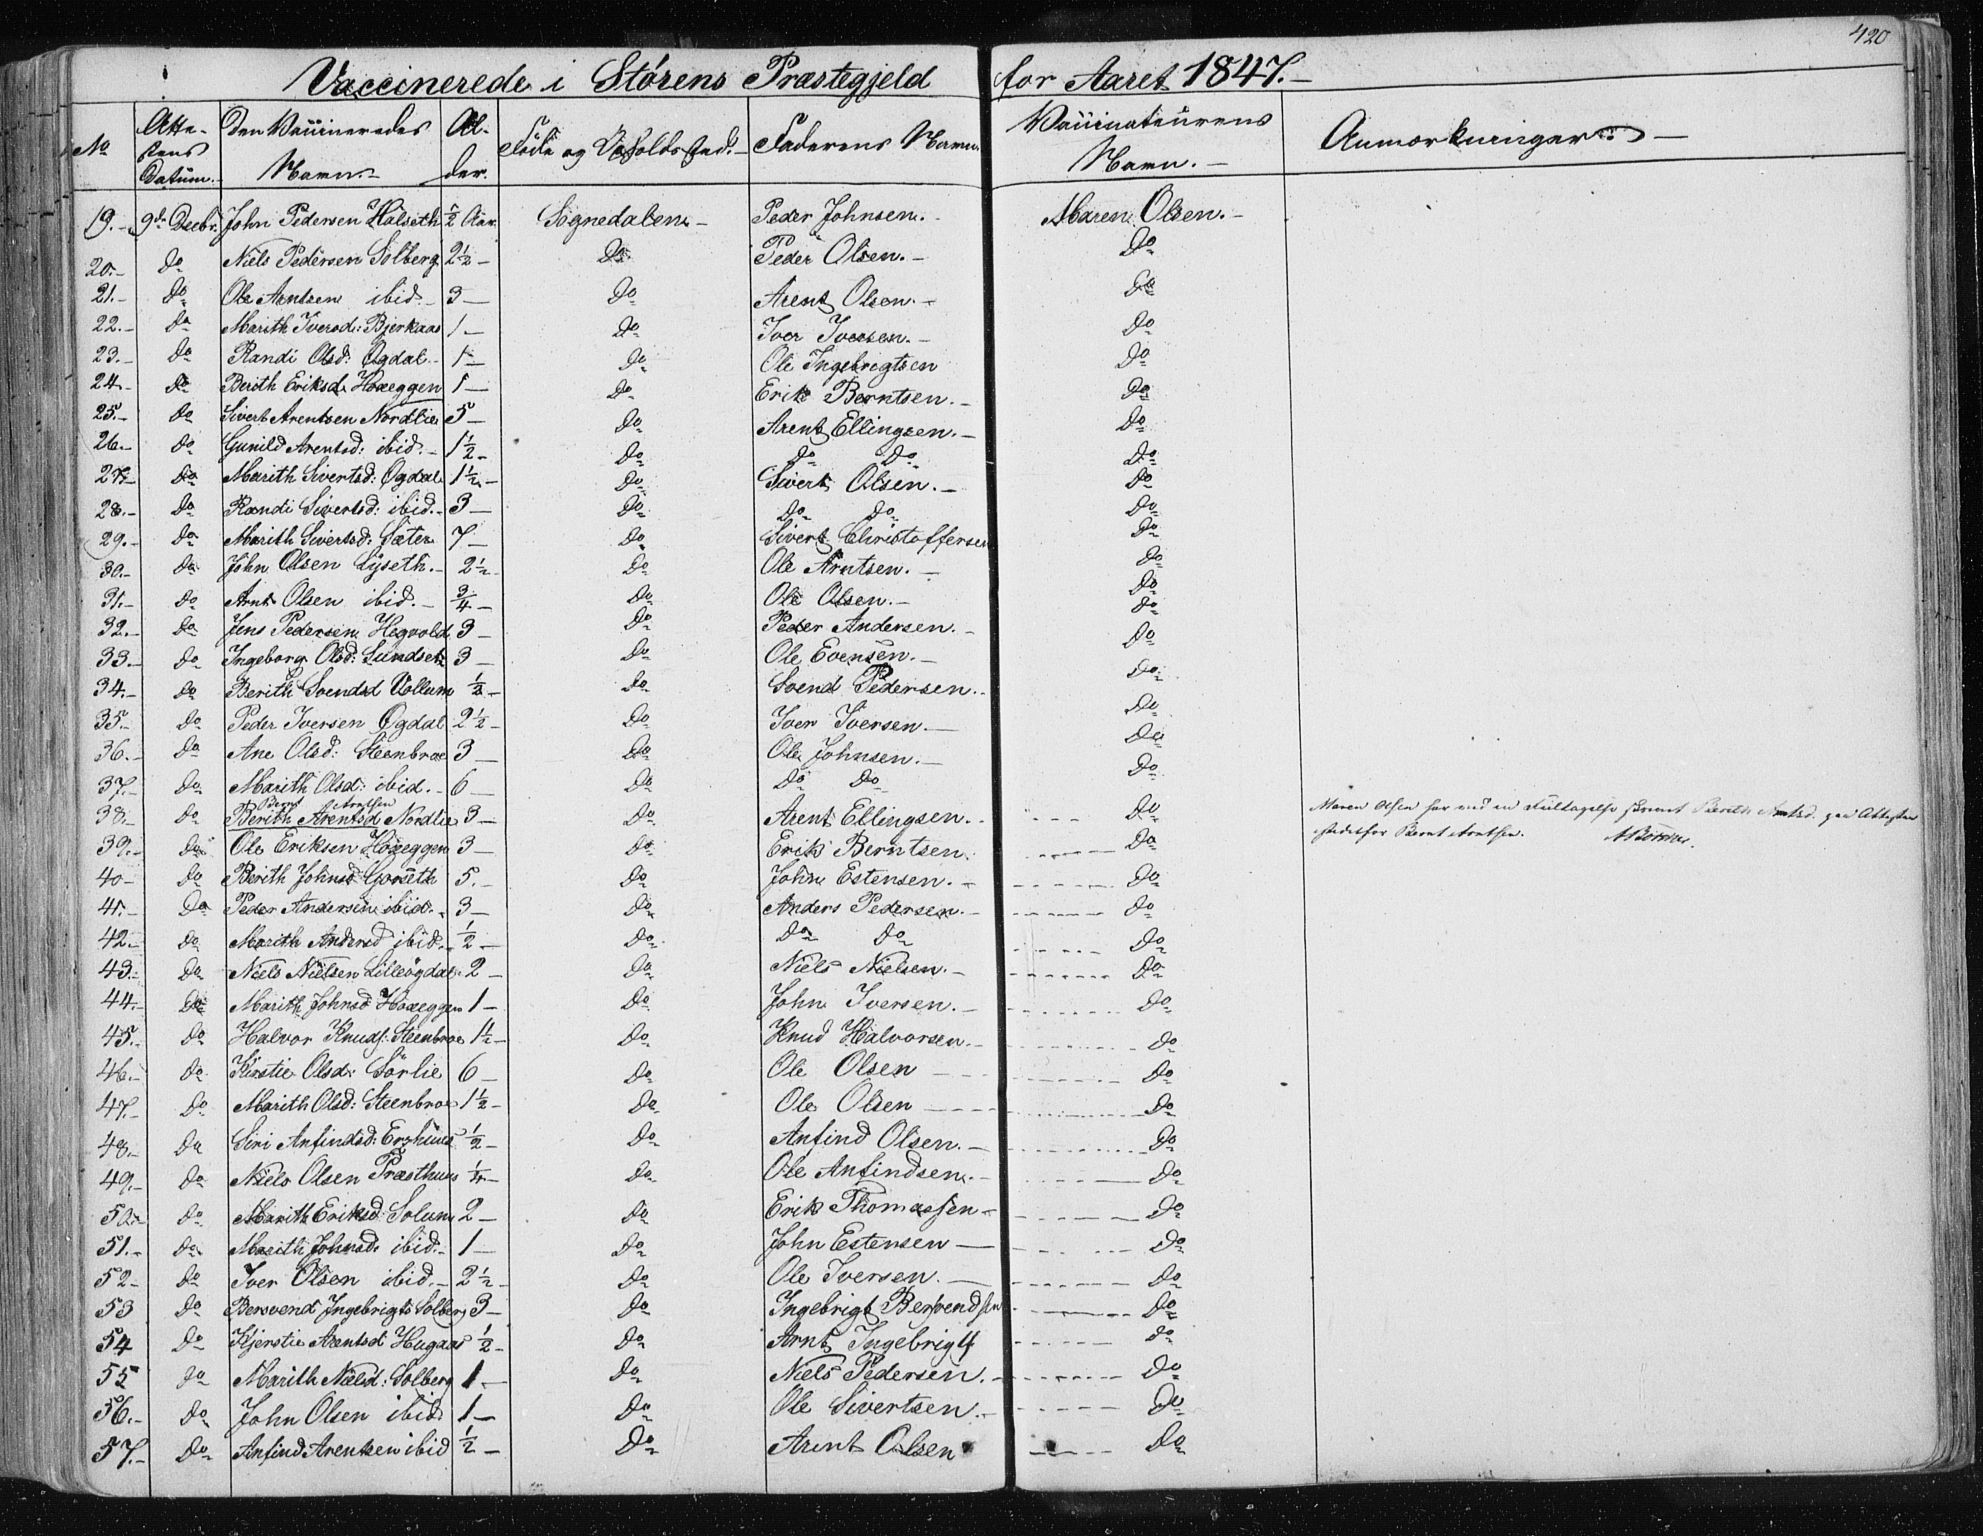 420
Vaccinerede i Størens Præstegjeld for Aaret 1847.-
No | Atte-stens Datum. | Den Vaccineredes Navn.- | Al-der. | Føde og Opholdssted.- | Faderens Navn. | Vaccinateurens Navn.- | Anmærkninger
19.- 9d Decbr. John Pedersen Halseth ½ Aar. Sognedalen.- Peder Johnsen.- Maren Olsen.-
20.- Do Niels Pedersen Solberg 2½ - Do Peder Olsen.- Do
21.- Do Ole Arntsen ibid.- 3 - Do Arent Olsen.- Do
22.- Do Marith Iversd: Bjerkaas 1.- Do Iver Iversen.- Do
23.- Do Randi Olsd: Øgdal.- 1 - Do Ole Ingebrigtsen Do
24.- Do Berith Eriksd. Hoxeggen 1 - Do Erik Berntsen.- Do
25.- Do Sivert Arentsen Nordlie 5 - Do Arent Ellingsen.- Do
26.- Do Gunild Arentsd: ibid.- 1½ - Do Do Do Do
27.- Do Marith Sivertsd: Øgdal 1½ - Do Sivert Olsen.- Do
28.- Do Randi Sivertsd: ibid.- 3 - Do Do Do Do
29.- Do Marith Sivertsd: Sæter 7 - Do Sivert Christoffersen Do
30.- Do John Olsen Lyseth.- 2½ - Do Ole Arntsen.- Do
31.- Do Arnt Olsen ibid.- ¾ - Do Ole Olsen.- Do
32.- Do Jens Pedersen Hegvold 3 - Do Peder Andersen.- Do
33.- Do Ingeborg Olsd: Sundset 3 - Do Ole Evensen.- Do
34.- Do Berith Svendsd Vollum ½ - Do Svend Pedersen.- Do
35.- Do Peder Iversen Øgdal 2½ - Do Iver Iversen.- Do
36.- Do Ane Olsd: Steenbroe 3 - Do Ole Johnsen.- Do
37.- Do Marith Olsd: ibid.- 6 - Do Do Do Do
Bernt Arntsen
38.- Do Berith Arentsd Nordlie 3 - Do Arent Ellingsen.- Do Maren Olsen har ved en Fejltagelse skrevet Berith Arntsd. paa Attesten
istedetfor Bernt Arntsen.
39.- Do Ole Eriksen Hoxeggen 3 - Do Erik Berntsen. Do
40 - Do Berith Johnsd Gorseth 5.- Do John Estensen.- Do
41.- Do Peder Andersen ibid.- 3 - Do Anders Pedersen.- Do
42.- Do Marith Andersd ibid.- ½ - Do Do Do Do
43.- Do Niels Nielsen Lilleøgdal 2 - Do Niels Nielsen.- Do
44.- Do Marith Johnsd Hoxeggen 1 - Do John Iversen.- Do
45.- Do Halvor Knuds: Steenbroe 1½ - Do Knud Halvorsen.- Do
46.- Do Kirstie Olsd: Sørlie 6 - Do Ole Olsen - Do
47.- Do Marith Olsd: Steenbroe 1½ - Do Ole Olsen - Do
48.- Do Siri Anfindsd: Erzhuus ½ - Do Anfind Olsen.- Do
49.- Do Niels Olsen Præsthuus ¼ - Do Ole Anfindsen.- Do
50.- Do Marith Eriksd: Solum 2 - Do Erik Thomassen - Do
51.- Do Marith Johnsd. ibid.- 1 - Do John Estensen - Do
52 - Do Iver Olsen ibid.- 2½ - Do Ole Iversen.- Do
53 Do Bersvend Ingebrigts Solberg 3 - Do Ingebrigt Bersvendsen Do
54 Do Kjerstie Arentsd Hugaas ½ - Do Arnt Ingebrigts Do
55 Do Marith Nielsd: Solberg 1 - Do Niels Pedersen.- Do
56.- Do John Olsen ibid 1 - Do Ole Sivertsen.- Do
57.- Do Anfind Arentsen ibid ½ - Do Arent Olsen Do